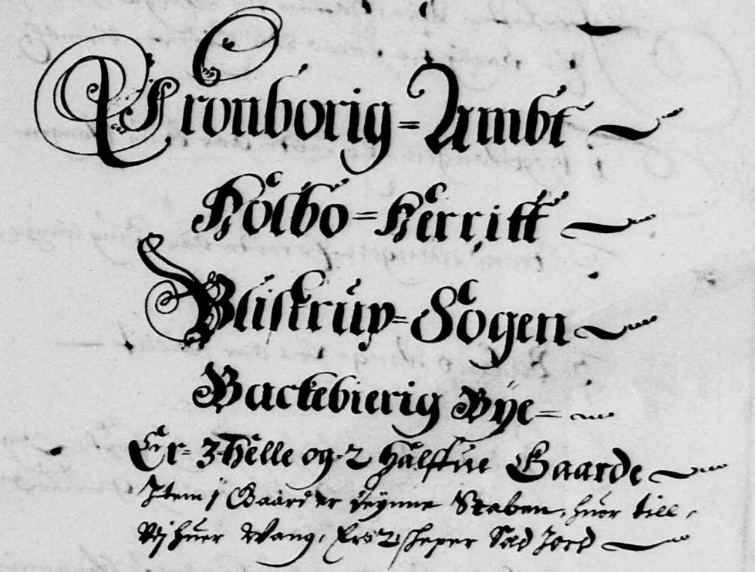 Cronborig=Ambt
Holbo=Herritt
Blistrup=Sogen
Backebierig Bÿe=
Er 3 Helle og 2 halffue Gaarde
Item j Gaard er
huer Wang, Er 2 scheper Sæd Jord